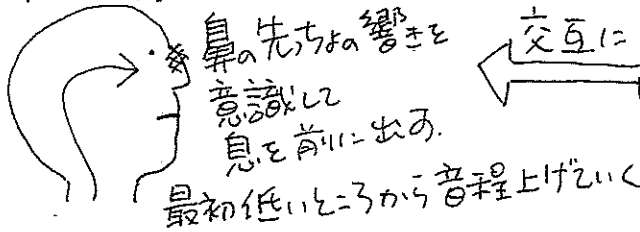 鼻の先っちょの響きを
意識して
息を前に出す.
最初低いところから音程上げていく
交互に